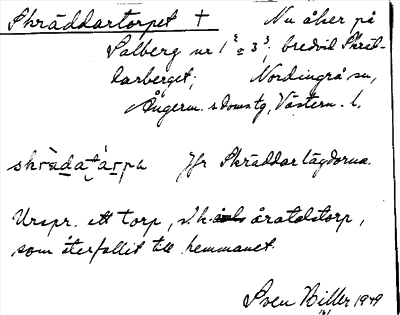 Skräddartorpet † Nu åker på
Salberg nr 1² = 3³, bredvid Skräd-
darberget; Nordingrå sn,
Ångerm. s. domstg, Västern. l.
skràdatàrpa Jfr Skräddartägdorna.
Urspr. ett torp, s.k. åratalstorp,
som återfallit till hemmanet.
Sven Hiller 1949